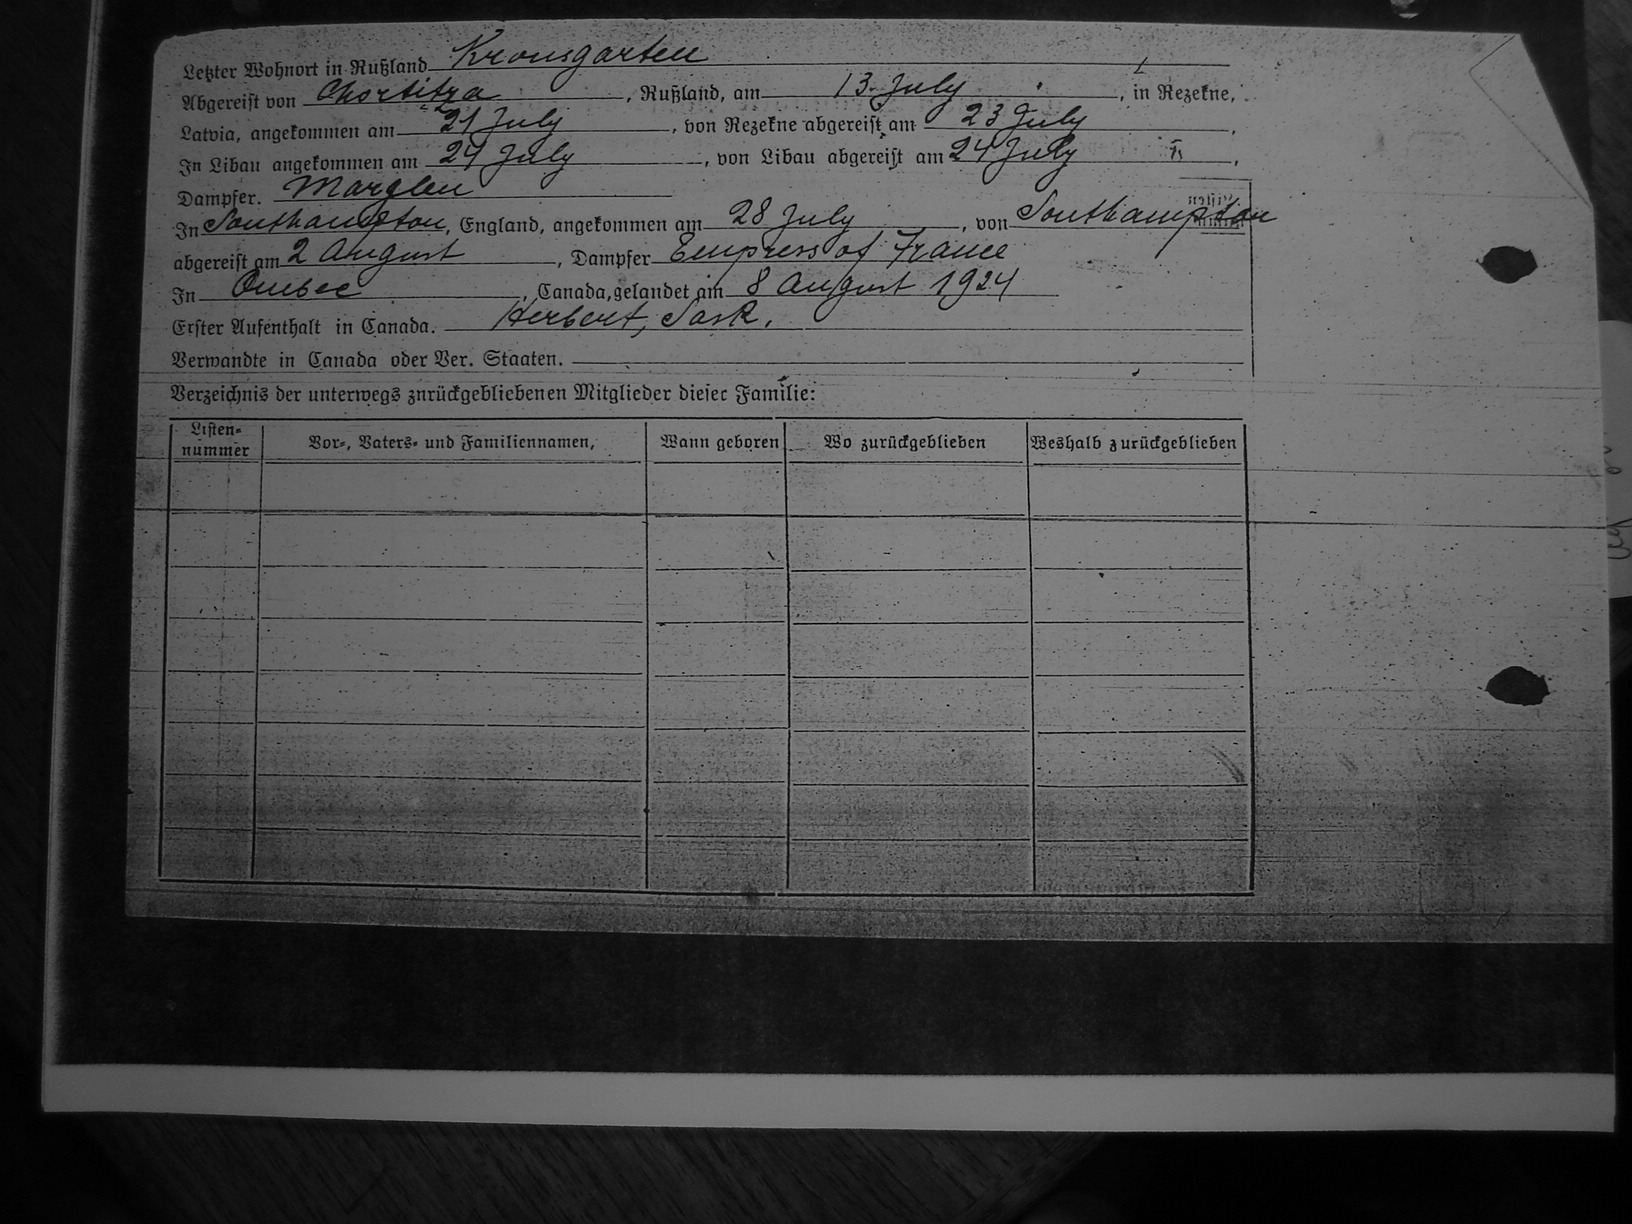 Letzter Wohnort in Rußland Kronsgarten
Abgereist von Chortitza, Rußland, am 13. July, in Rezekne,
Latvia, angekommen am 21 July, von Rezekne abgereist am 23 July,
In Libau angekommen am 24 July, von Libau abgereist am 24 July,
Dampfer. Marglen
In Southampton, England, angekommen am 28 July, von Southampton
abgereist am 2 August, Dampfer Empress of France
In Quebec, Canada, gelandet am 8 August 1924
Erster Aufenthalt in Canada. Herbert, Sask.
Verwandte in Canada oder Ver. Staaten.
Verzeichnis der unterwegs znrückgebliebenen Mitglieder dieser Familie:
Listen-nummer Vor-, Vaters- und Familiennamen, Wann geboren Wo zurückgeblieben Weshalb zurückgeblieben